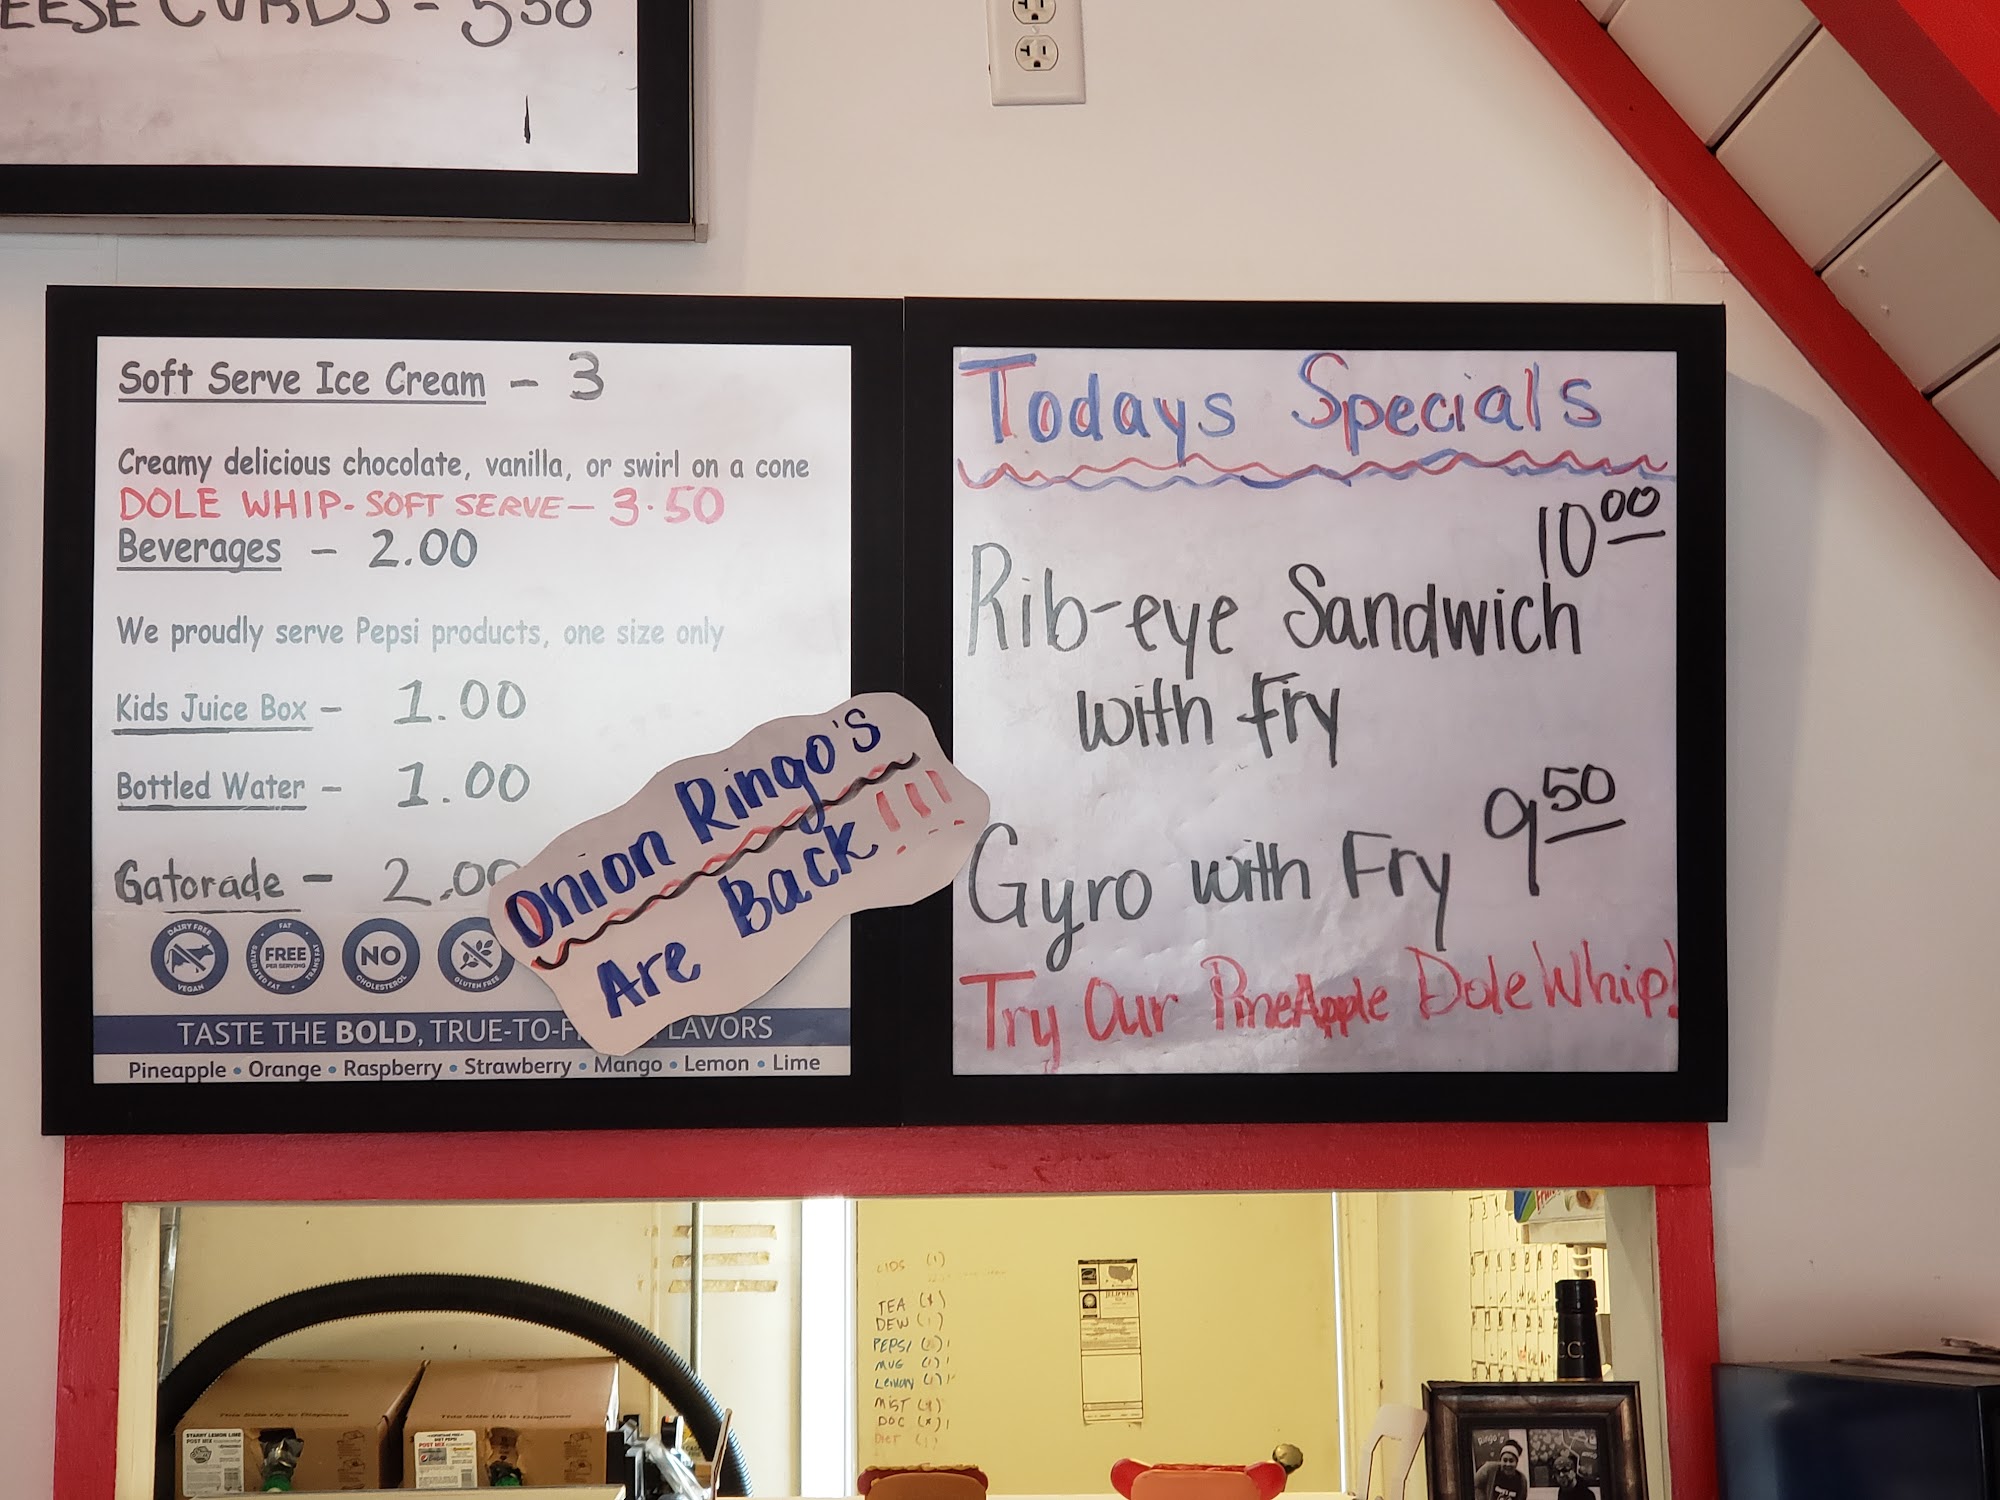 CURDS - 550
Soft Serve Ice Cream - 3
Creamy delicious chocolate, vanilla, or swirl on a cone
DOLE WHIP- SOFT SERVE- 3.50
Beverages - 2.00
We proudly serve Pepsi products, one size only
Kids Juice Box - 1.00
Bottled Water - 1.00
Gatorade - 2.00
DAIRY FREE
VEGAN
FAT
FREE
PER SERVING
SATURATED FAT
TRANS FAT
NO
CHOLESTEROL
GLUTEN FREE
TASTE THE BOLD, TRUE-TO-
Pineapple • Orange • Raspberry • Strawberry • Mango • Lemon • Lime
Onion Ringo's
Are Back!!!
Todays Specials
10 00
Rib-eye Sandwich
with Fry
Gyro with Fry 9 50
Try Our PineApple Dole Whip!
TEA
DEW
PEPSI
MUG
MIST
DOC
DIET
This Side Up to Dispense
This Side Up to Dispense
STARRY LEMON LIME
POST MIX
DIET PEPSI
POST MIX
Ringo's